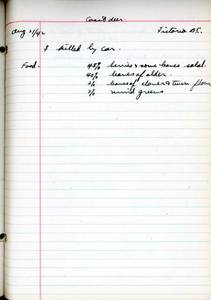 Coast deer.
Aug 31/42 Victoria BC.
1 killed by car.
Food - 45% berries & some leaves salal.
40% leaves of alder
% leaves of clover & twin flower
5% mixed greens